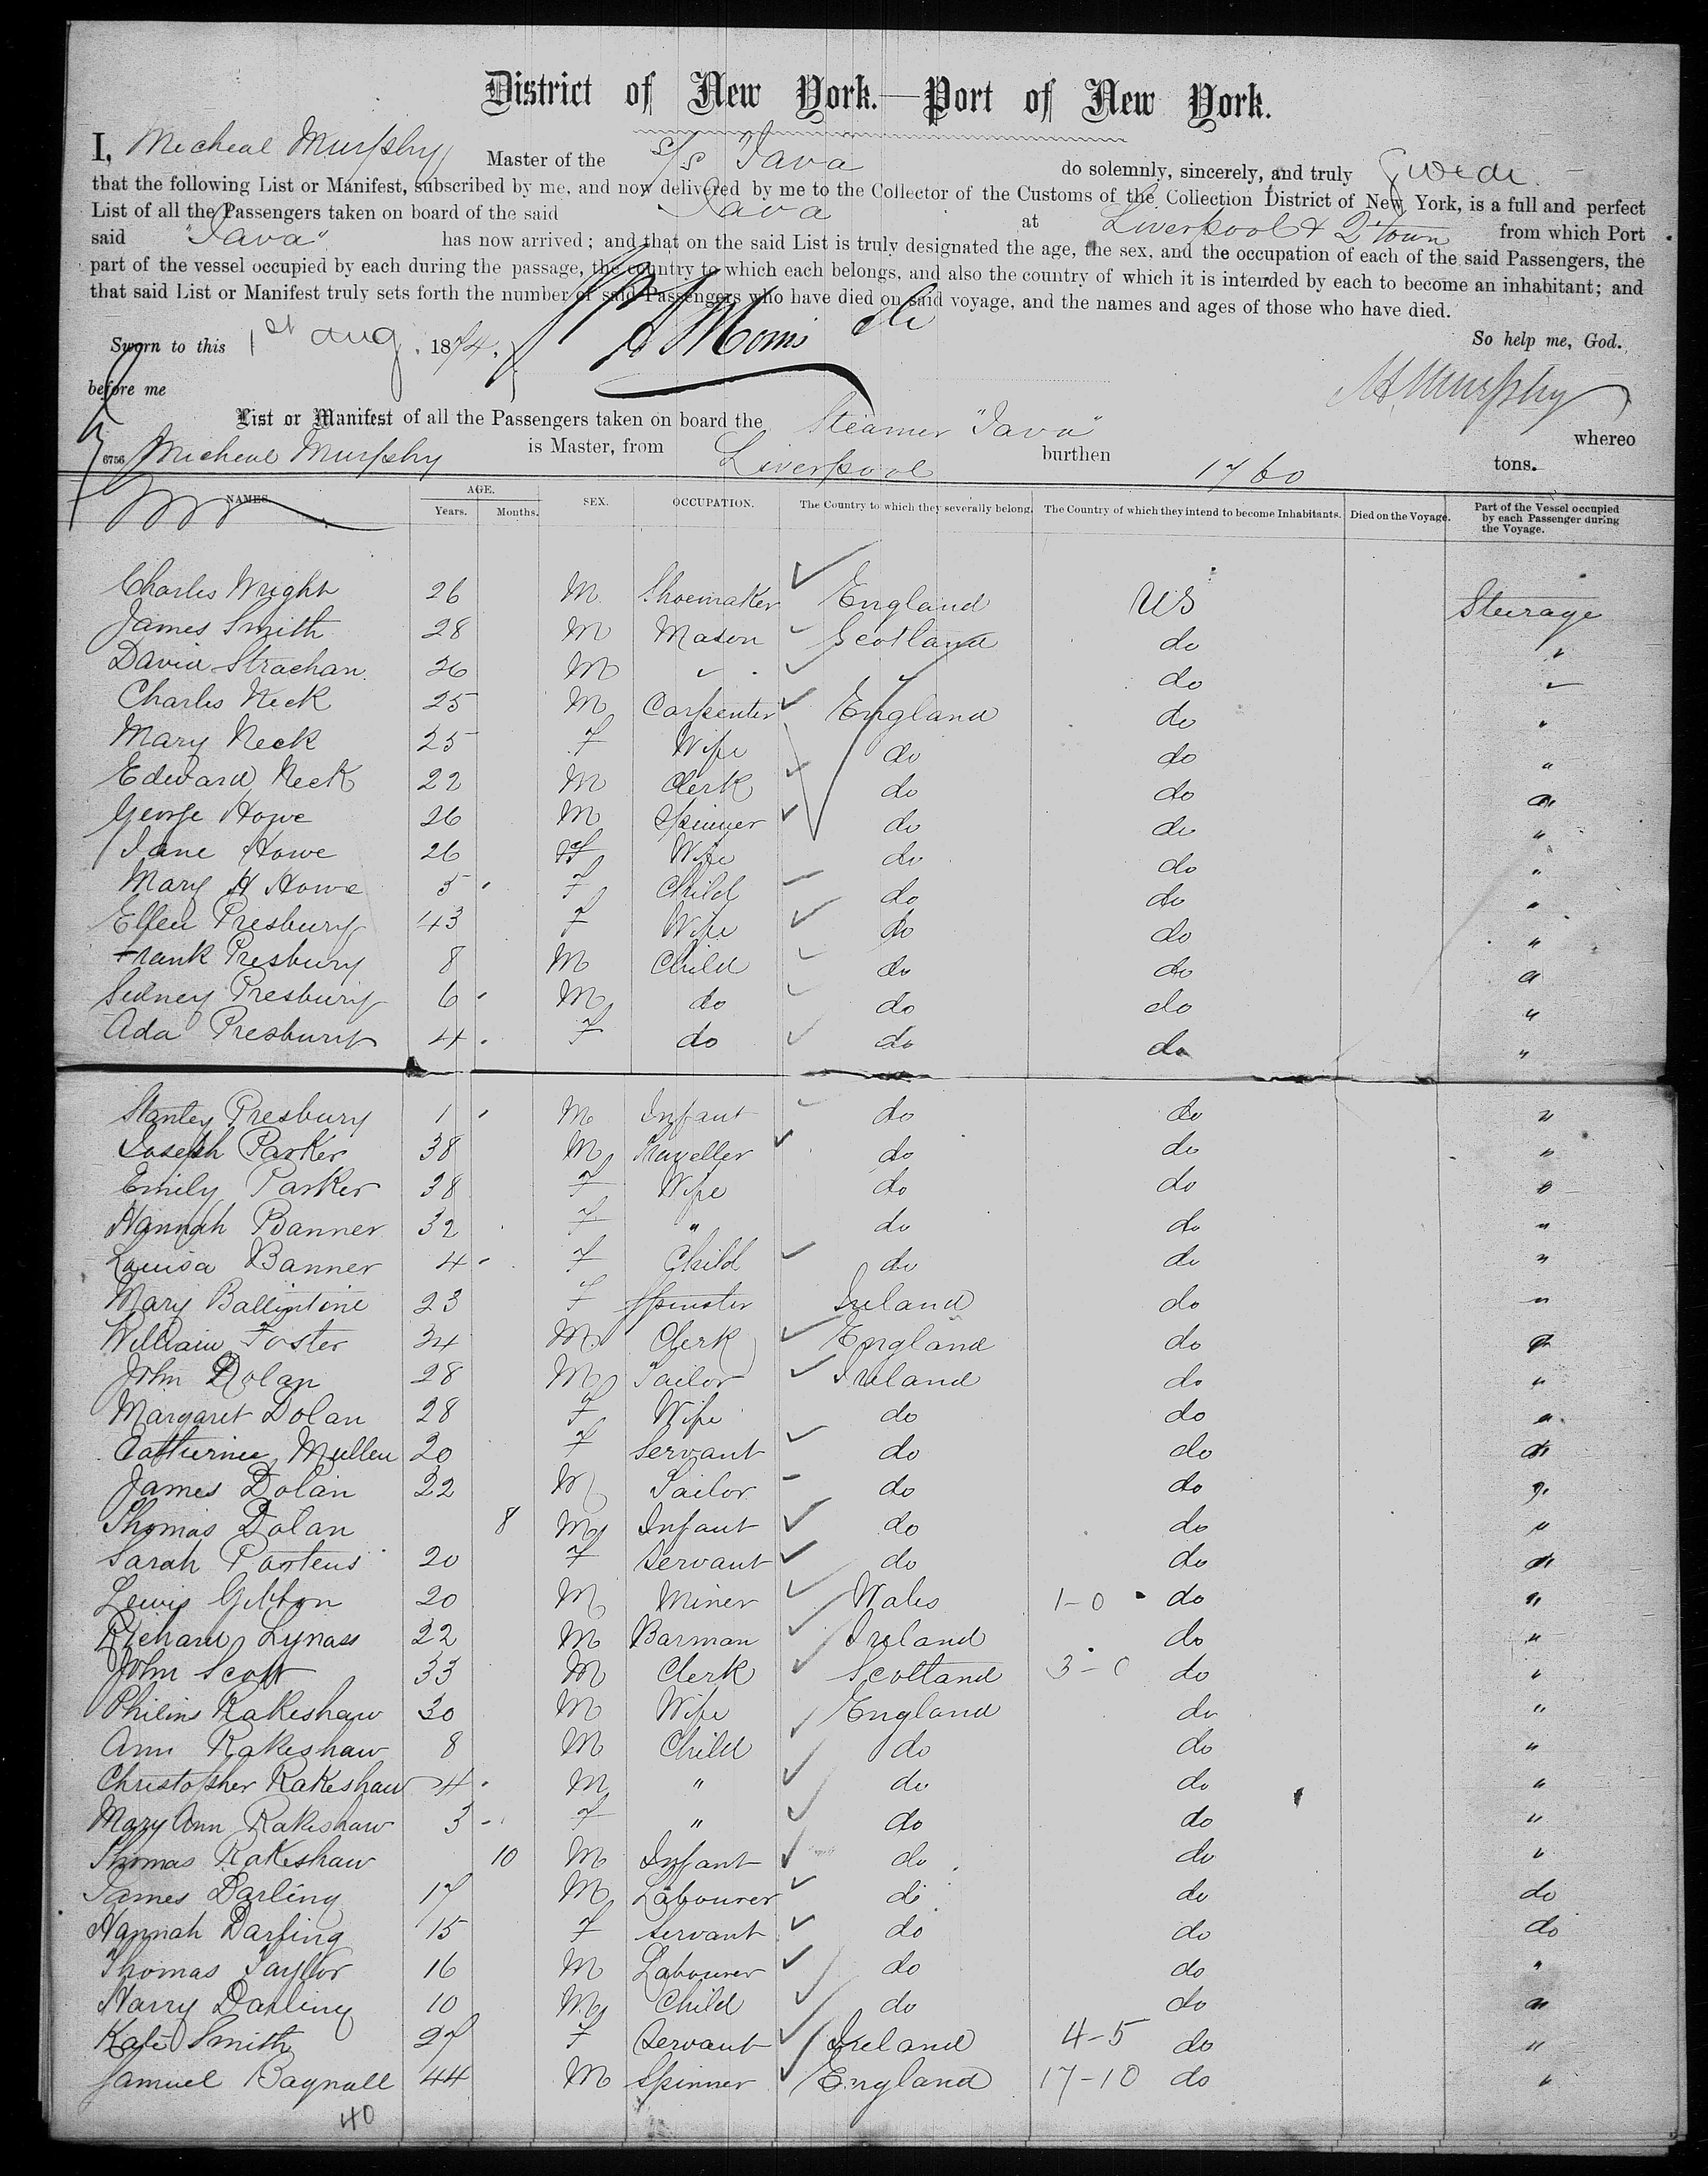 District of New York.—Port of New York.
I, Micheal Murphy Master of the S/S Java do solemnly, sincerely, and truly
that the following List or Manifest, subscribed by me, and now delivered by me to the Collector of the Customs of the Collection District of New York, is a full and perfect
List of all the Passengers taken on board of the said Java at Liverpool & Q'town from which Port
said "Java" has now arrived; and that on the said List is truly designated the age, the sex, and the occupation of each of the said Passengers, the
part of the vessel occupied by each during the passage, the country to which each belongs, and also the country of which it is intended by each to become an inhabitant; and
that said List or Manifest truly sets forth the number of said Passengers who have died on said voyage, and the names and ages of those who have died.
Sworn to this 1st Aug. 1874. So help me, God.
before me M Murphy
List or Manifest of all the Passengers taken on board the Steamer "Java" whereo
6756 Micheal Murphy is Master, from Liverpool burthen 1760 tons.
NAMES. AGE. Years. Months. SEX. OCCUPATION. The Country to which they severally belong. The Country of which they intend to become Inhabitants. Died on the Voyage. Part of the Vessel occupied by each Passenger during the Voyage.
Charles Wright 26 M Shoemaker England US Steerage
James Smith 28 M Mason Scotland do "
David Strachan 26 M " do "
Charles Neck 25 M Carpenter England do "
Mary Neck 25 F Wife do do "
Edward Neck 22 M Clerk do do "
George Howe 26 M Spinner do do "
Jane Howe 26 F Wife do do "
Mary H Howe 5 F Child do do "
Ellen Presbury 43 F Wife do do "
Frank Presbury 8 M Child do do "
Sidney Presbury 6 M do do do "
Ada Presbury 4 F do do do "
Stanley Presbury 1 M Infant do do "
Joseph Parker 38 M Traveller do do "
Emily Parker 38 F Wife do do "
Hannah Banner 32 F " do do "
Louisa Banner 4 F Child do do "
Mary Ballintine 23 F Spinster Ireland do "
William Foster 34 M Clerk England do "
John Dolan 28 M Tailor Ireland do "
Margaret Dolan 28 F Wife do do "
Catherine Mullen 20 F Servant do do "
James Dolan 22 M Tailor do do "
Thomas Dolan 8 M Infant do do "
Sarah Porteus 20 F Servant do do "
Lewis Gibbon 20 M Miner Wales 1-0 do "
Richard Lynass 22 M Barman Ireland do "
John Scott 33 M Clerk Scotland 3-0 do "
Rakeshaw 30 M Wife England do "
Ann Rakeshaw 8 M Child do do "
Christopher Rakeshaw 4 M " do do "
Mary Ann Rakeshaw 3 F " do do "
Thomas Rakeshaw 10 M Infant do do "
James Darling 17 M Labourer do do do
Hannah Darling 15 F Servant do do do
Thomas Taylor 16 M Labourer do do "
Harry Darling 10 M Child do do "
Kate Smith 27 F Servant Ireland 4-5 do "
Samuel Bagnall 44 M Spinner England 17-10 do "
40